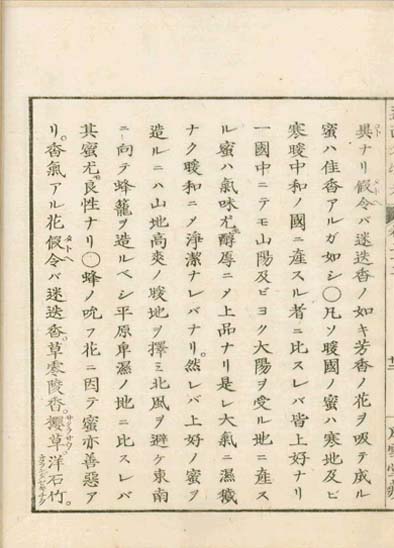 異ナリ假令バ迷迭香ノ如キ芳香ノ花ヲ吸テ成ル
蜜ハ佳香アルガ如シ〇凡ソ暖國ノ蜜ハ寒地及ビ
寒暖中和ノ國ニ產スル者ニ比スレバ皆上好ナリ
一國中ニテモ山陽及ビヨク大陽ヲ受ル地ニ產ス
ル蜜ハ氣味尤醇厚ニメ上品ナリ是レ大氣ニ濕穢
ナク暖和ニメ淨潔ナレバナリ。然レバ上好ノ蜜ヲ
造ルニハ山地高爽ノ暖地ヲ擇ミ北風ヲ避ケ東南
ニ向テ蜂籠ヲ造ルベシ平原卑濕ノ地ニ比スレバ
其蜜尤良性ナリ〇蜂ノ吮フ花ニ因テ蜜亦善惡ア
リ。香氣アル花假令バ迷迭香。草寒陵香。櫻草洋石竹。